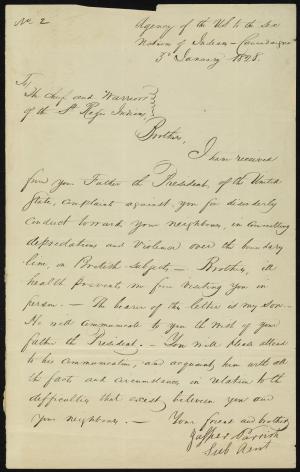 No 2
Agency of the U.S. to the Six
Nations of Indians – Canandaigua
3d January 1825.
To
The Chiefs and Warriors
of the St Regis Indians
Brothers,
I have received
from your Father the President, of the United
States, complaint against you for disorderly
conduct towards your neighbours, in committing
depredations and violence over the boundary
line, on British subjects – Brothers, ill
health prevents me from visiting you in
person. – The bearer of this letter is my Son –
He will communicate to you the wish of your
father the President. – You will please attend
to his communication, and acquaint him with all
the facts and circumstances in relation to the
difficulties that exist between you and
your neighbours. – Your friend and brother
Jasper Parrish
Sub Agent